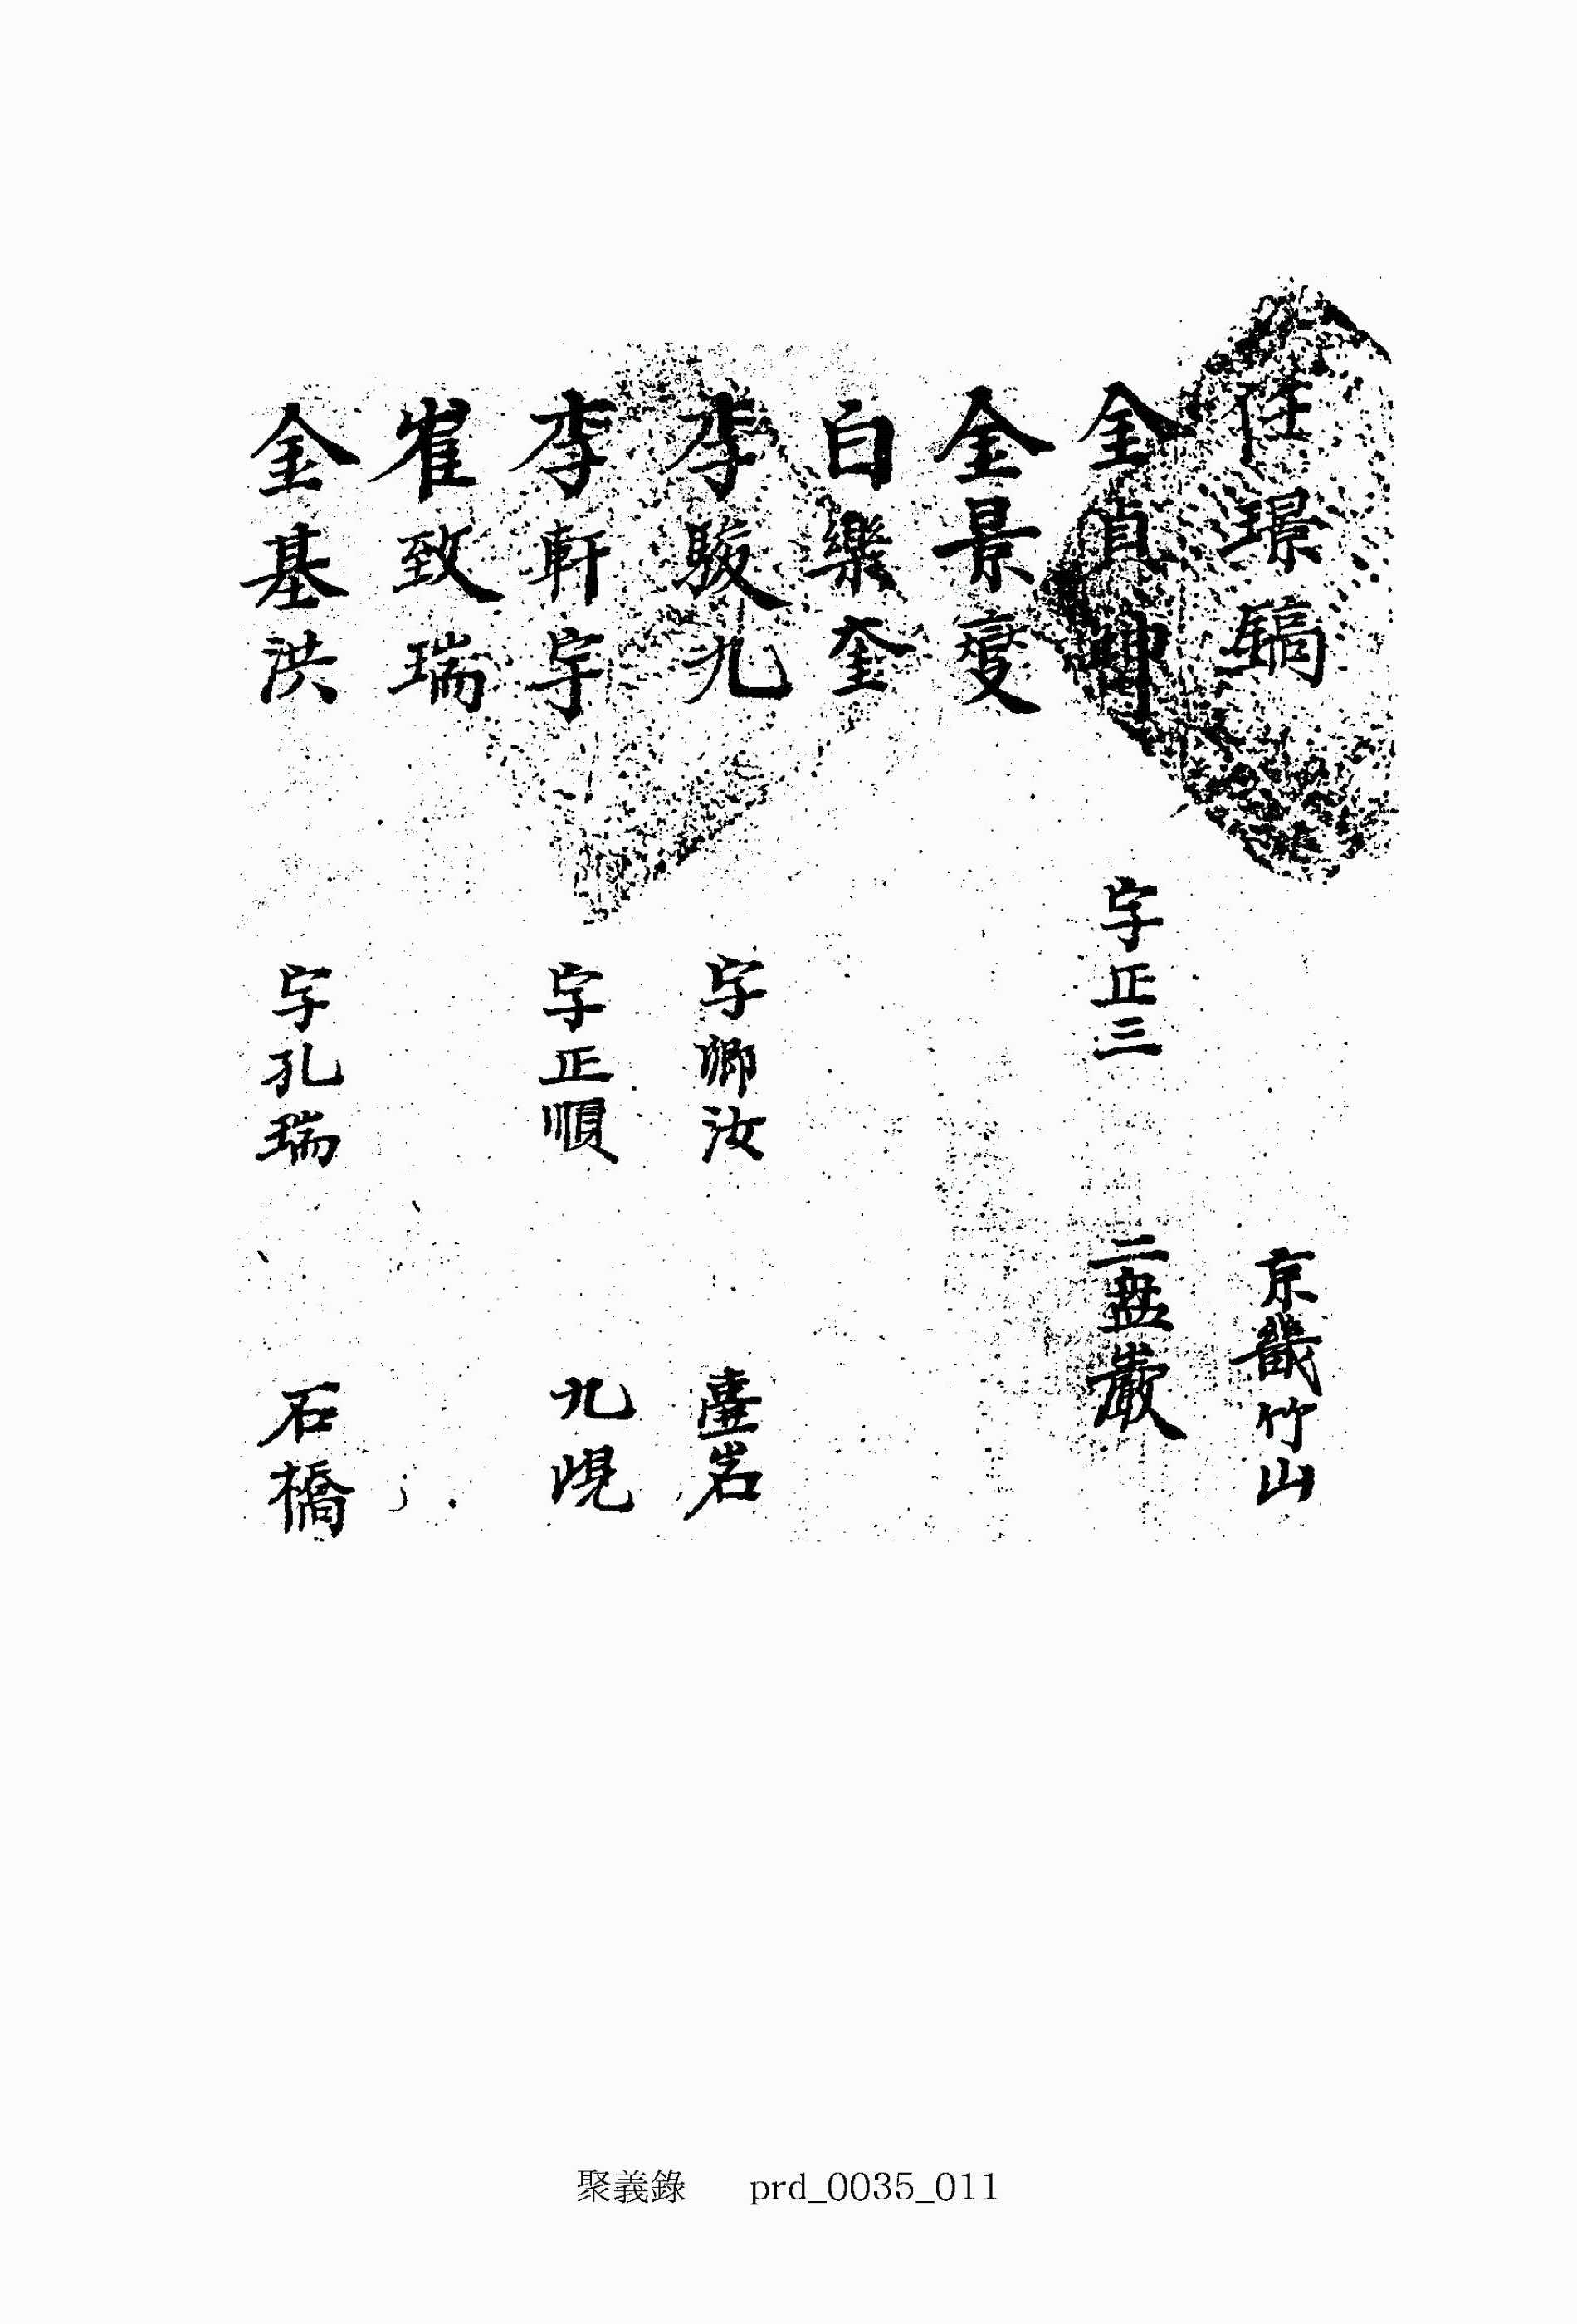 任璟鎬 京畿竹山
金貞 字正三 二盤巖
金景燮
白樂奎
李駿九 字卿汝 臺岩
李軒宇 字正順 九峴
崔致瑞
金基洪 字孔瑞 石橋
聚義錄 prd_0035_011